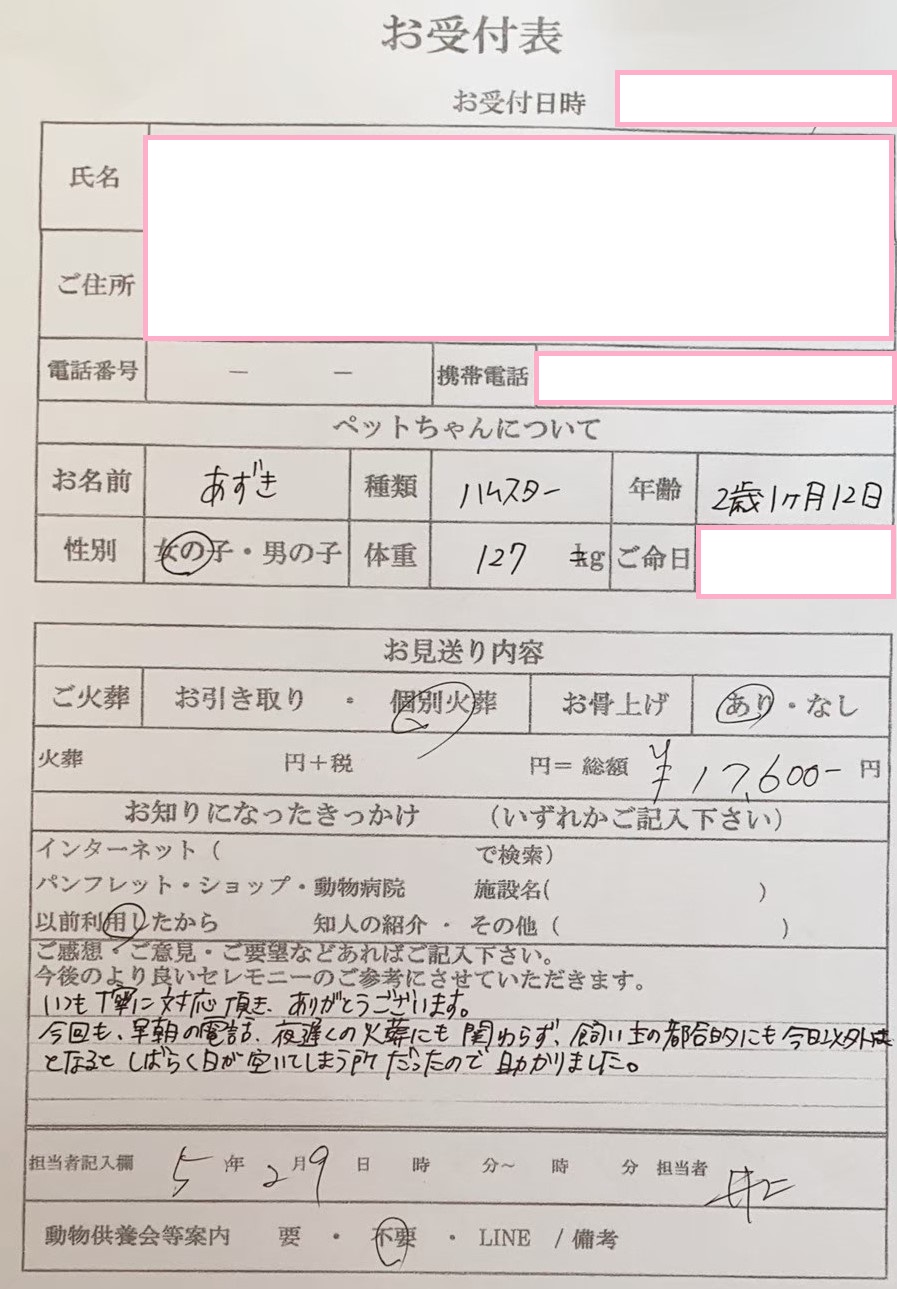 お受付表
お受付日時
氏名
ご住所
電話番号 － － 携帯電話
ペットちゃんについて
お名前 あずき 種類 ハムスター 年齢 2歳1ヶ月12日
性別 女の子・男の子 体重 127 kg ご命日
お見送り内容
ご火葬 お引き取り ・ 個別火葬 お骨上げ あり・なし
火葬 円＋税 円＝ 総額 ¥17,600- 円
お知りになったきっかけ （いずれかご記入下さい）
インターネット（ で検索）
パンフレット・ショップ・動物病院 施設名( )
以前利用したから 知人の紹介 ・ その他（ ）
ご感想・ご意見・ご要望などあればご記入下さい。
今後のより良いセレモニーのご参考にさせていただきます。
いつも丁寧に対応頂き、ありがとうございます。
今回も、早朝の電話、夜遅くの火葬にも関わらず、飼い主の都合的にも今日以外
となるとしばらく日が空いてしまう所だったので助かりました。
担当者記入欄 5 年 2 月 9 日 時 分～ 時 分 担当者
動物供養会等案内 要 ・ 不要 ・ LINE / 備考